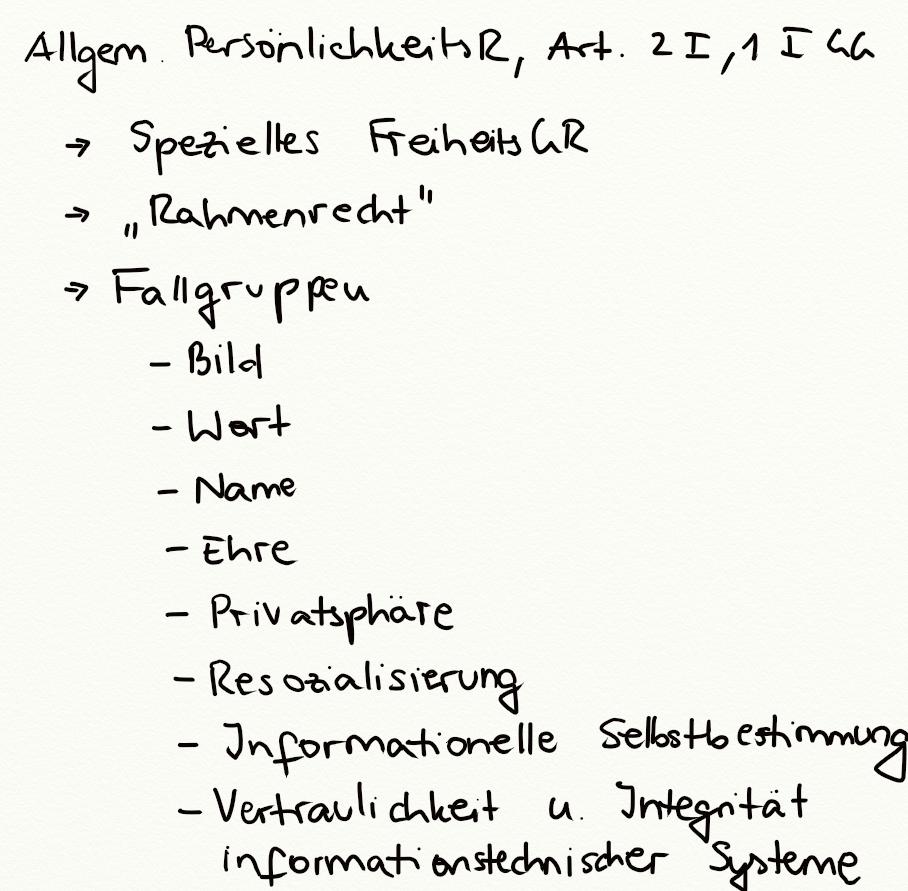 Allgem. PersönlichkeitsR, Art. 2 I, 1 I GG
→ Spezielles FreiheitsGR
→ „Rahmenrecht"
→ Fallgruppen
- Bild
- Wort
- Name
- Ehre
- Privatsphäre
- Resozialisierung
- Informationelle Selbstbestimmung
- Vertraulichkeit u. Integrität
informationstechnischer Systeme